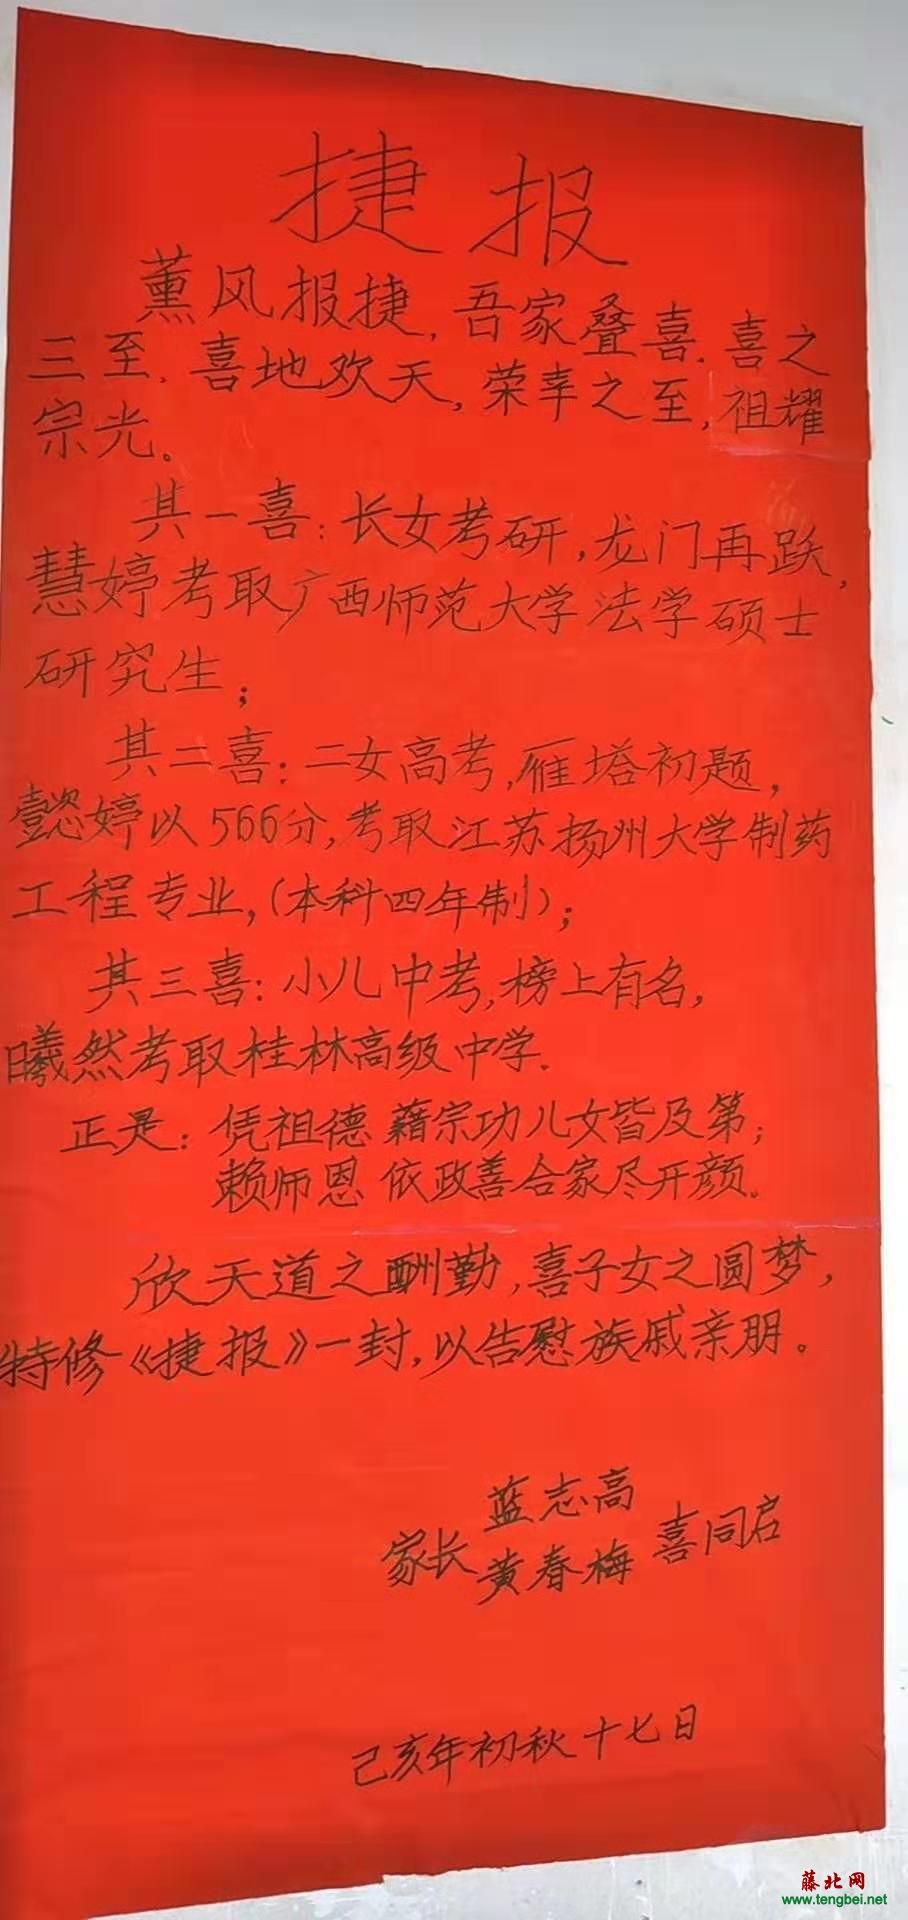 捷报
薰风报捷,吾家叠喜.喜之
三至.喜地欢天,荣幸之至,祖耀
宗光。
其一喜:长女考研,龙门再跃,
慧婷考取广西师范大学法学硕士
研究生;
其二喜:二女高考,雁塔初题,
懿婷以566分,考取江苏扬州大学制药
工程专业,(本科四年制);
其三喜:小儿中考,榜上有名,
曦然考取桂林高级中学.
正是:凭祖德 藉宗功儿女皆及第;
赖师恩 依政善合家尽开颜。
欣天道之酬勤,喜子女之圆梦,
特修《捷报》一封,以告慰族戚亲朋。
蓝志高
家长 喜同启
黄春梅
己亥年初秋十七日
藤北网
www.tengbei.net